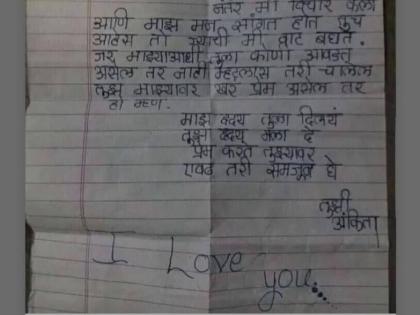 नंतर मी विचार केला
आणि माझ मन सांगत होत तुच
आहेस तो ज्याची मी वाट बघते.
जर माझ्याआधी तुला कोणी आवडत
असेल तर नाही म्हटलास तरी चालेल
तुझ माझ्यावर खर प्रेम असेल तर
हो म्हण.
माझ हृदय तुला दिलयं
तुझ हृदय मला दे
प्रेम करते तुझ्यावर
एवढ तरी समजून घे
तुझी
अंकिता
I Love
you....